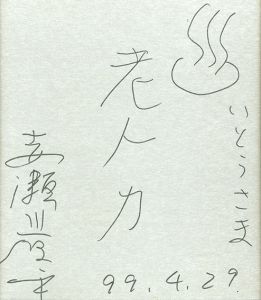 いとうさま
老人力
赤瀬川原平
99.4.29.